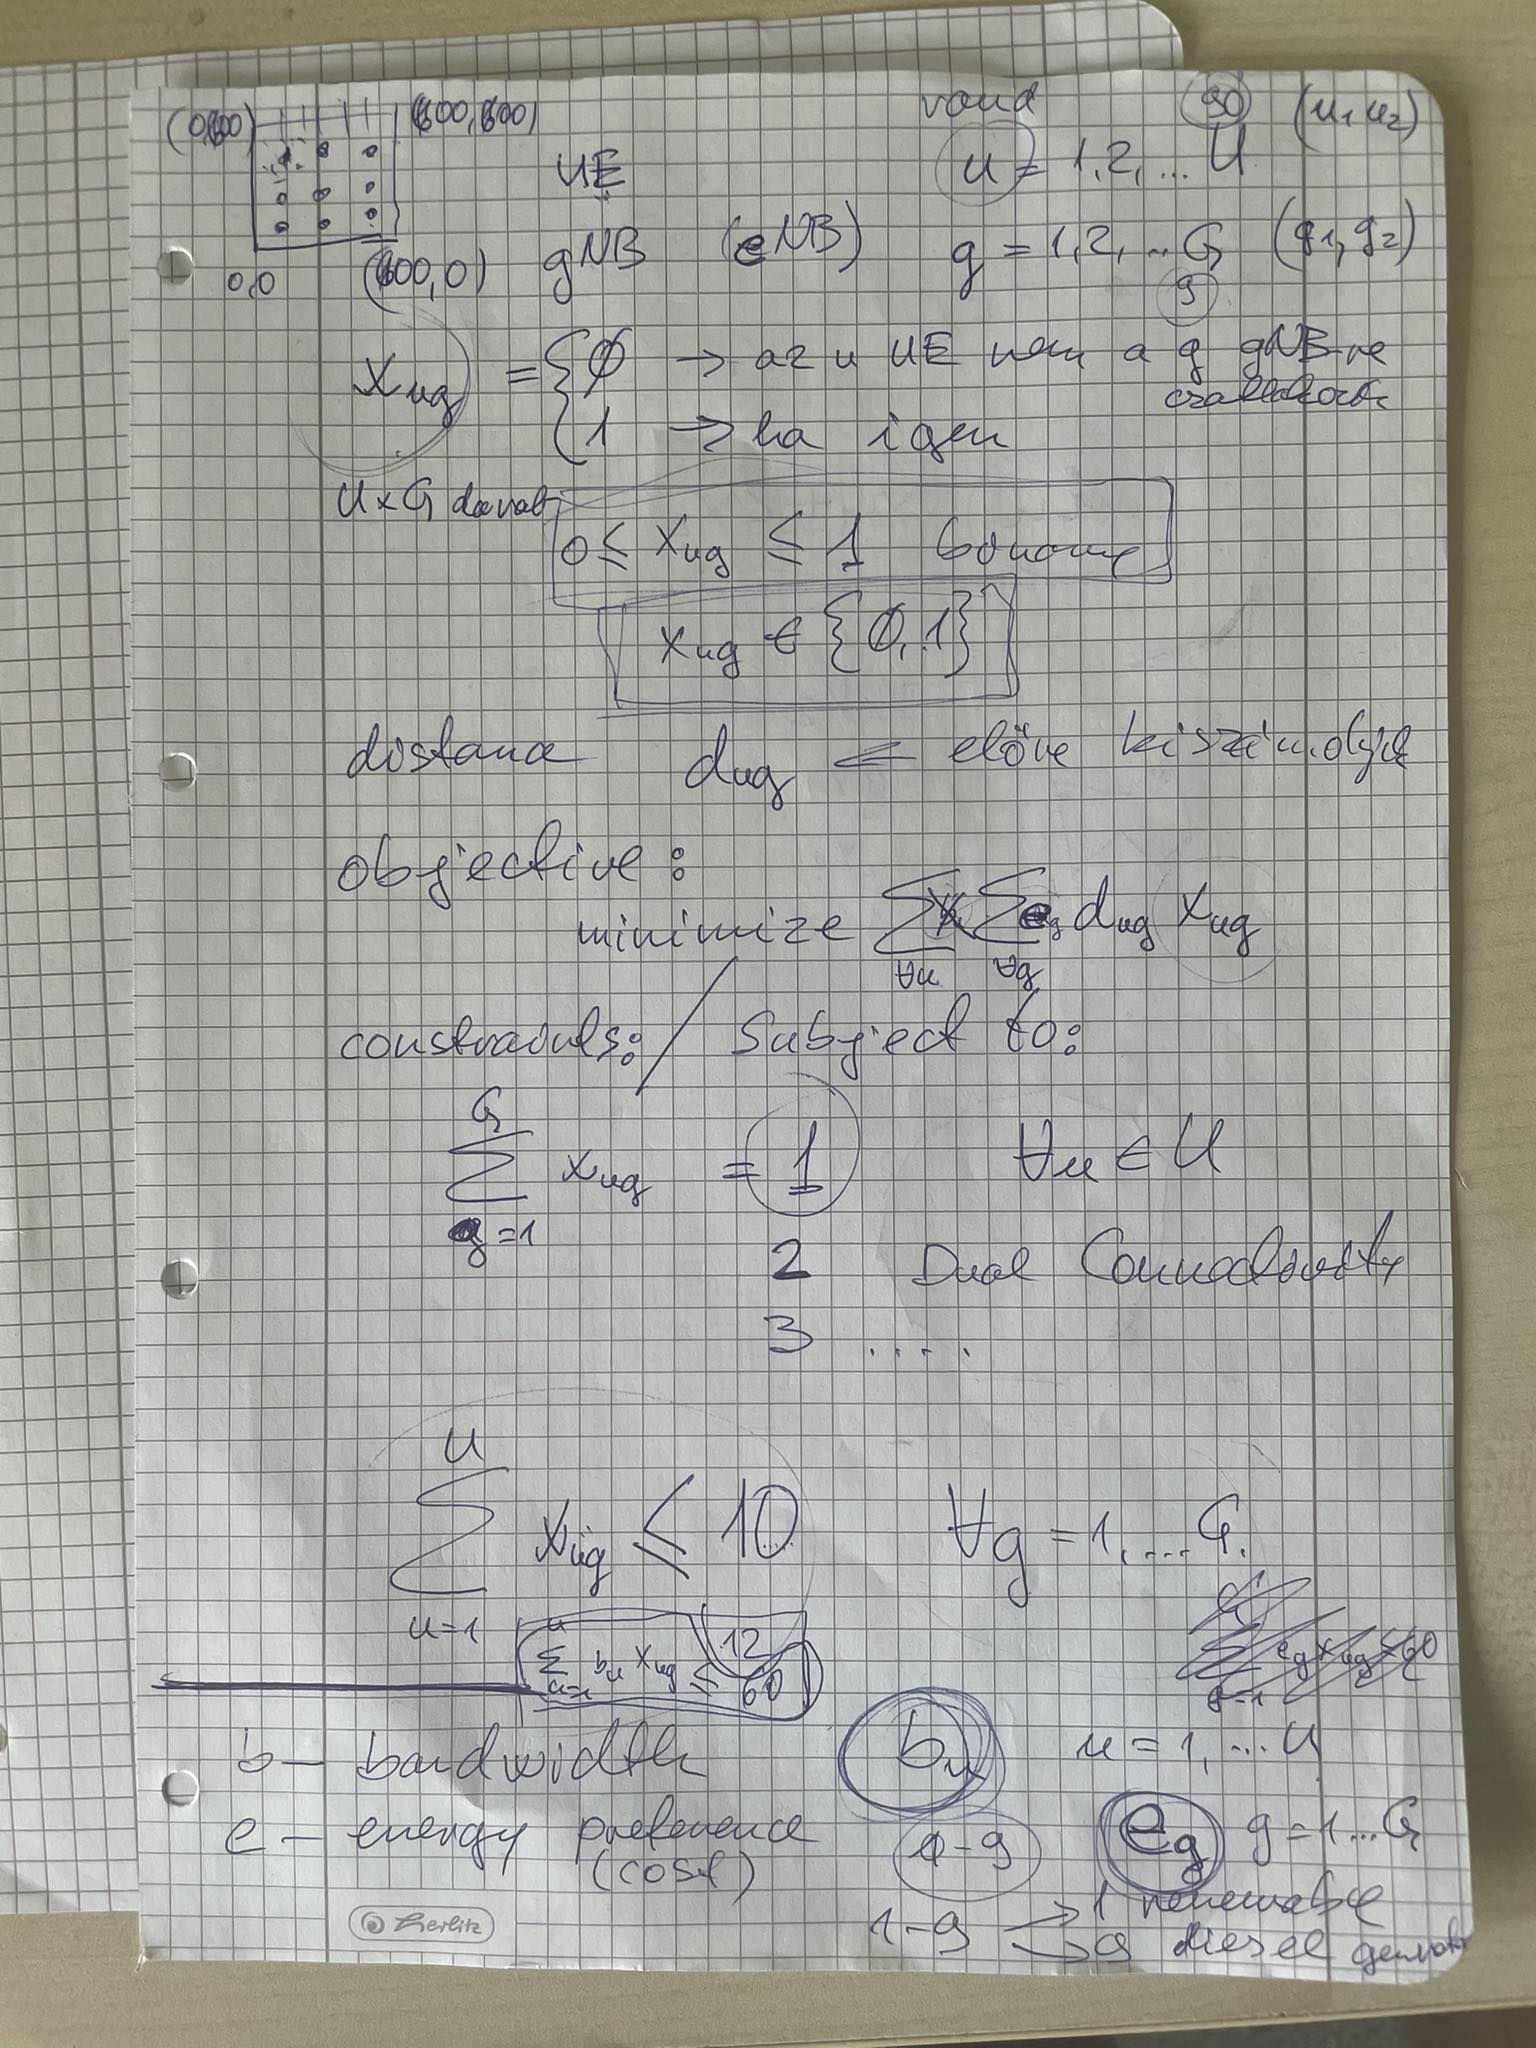 (600,0)
0,0
rand 90 (u1 u2)
UE u = 1,2, ... U
gNB (eNB) g = 1,2, ... G (g1, g2)
9
xug = { Ø → az u UE nem a g gNB-re
csatlakozik
1 → ha igen
U×G darab
0 ≤ xug ≤ 1 binary
xug ∈ {0,1}
distance dug ⇐ előre kiszámoljuk
objective:
minimize Σ Σ eg dug xug
∀u ∀g
constraints: / Subject to:
G
Σ xug = 1 ∀u ∈ U
g=1
2 Dual Connectivity
3 ....
U
Σ xug ≤ 10 ∀g = 1, .... G.
u=1
u 12
Σ bu xug ≤ 60
u=1
b – bandwidth bu u = 1, ... U
e – energy preference eg g = 1 ... G
(cost)
1-9 → 1 renewable
→ 9 diesel generator
herlitz